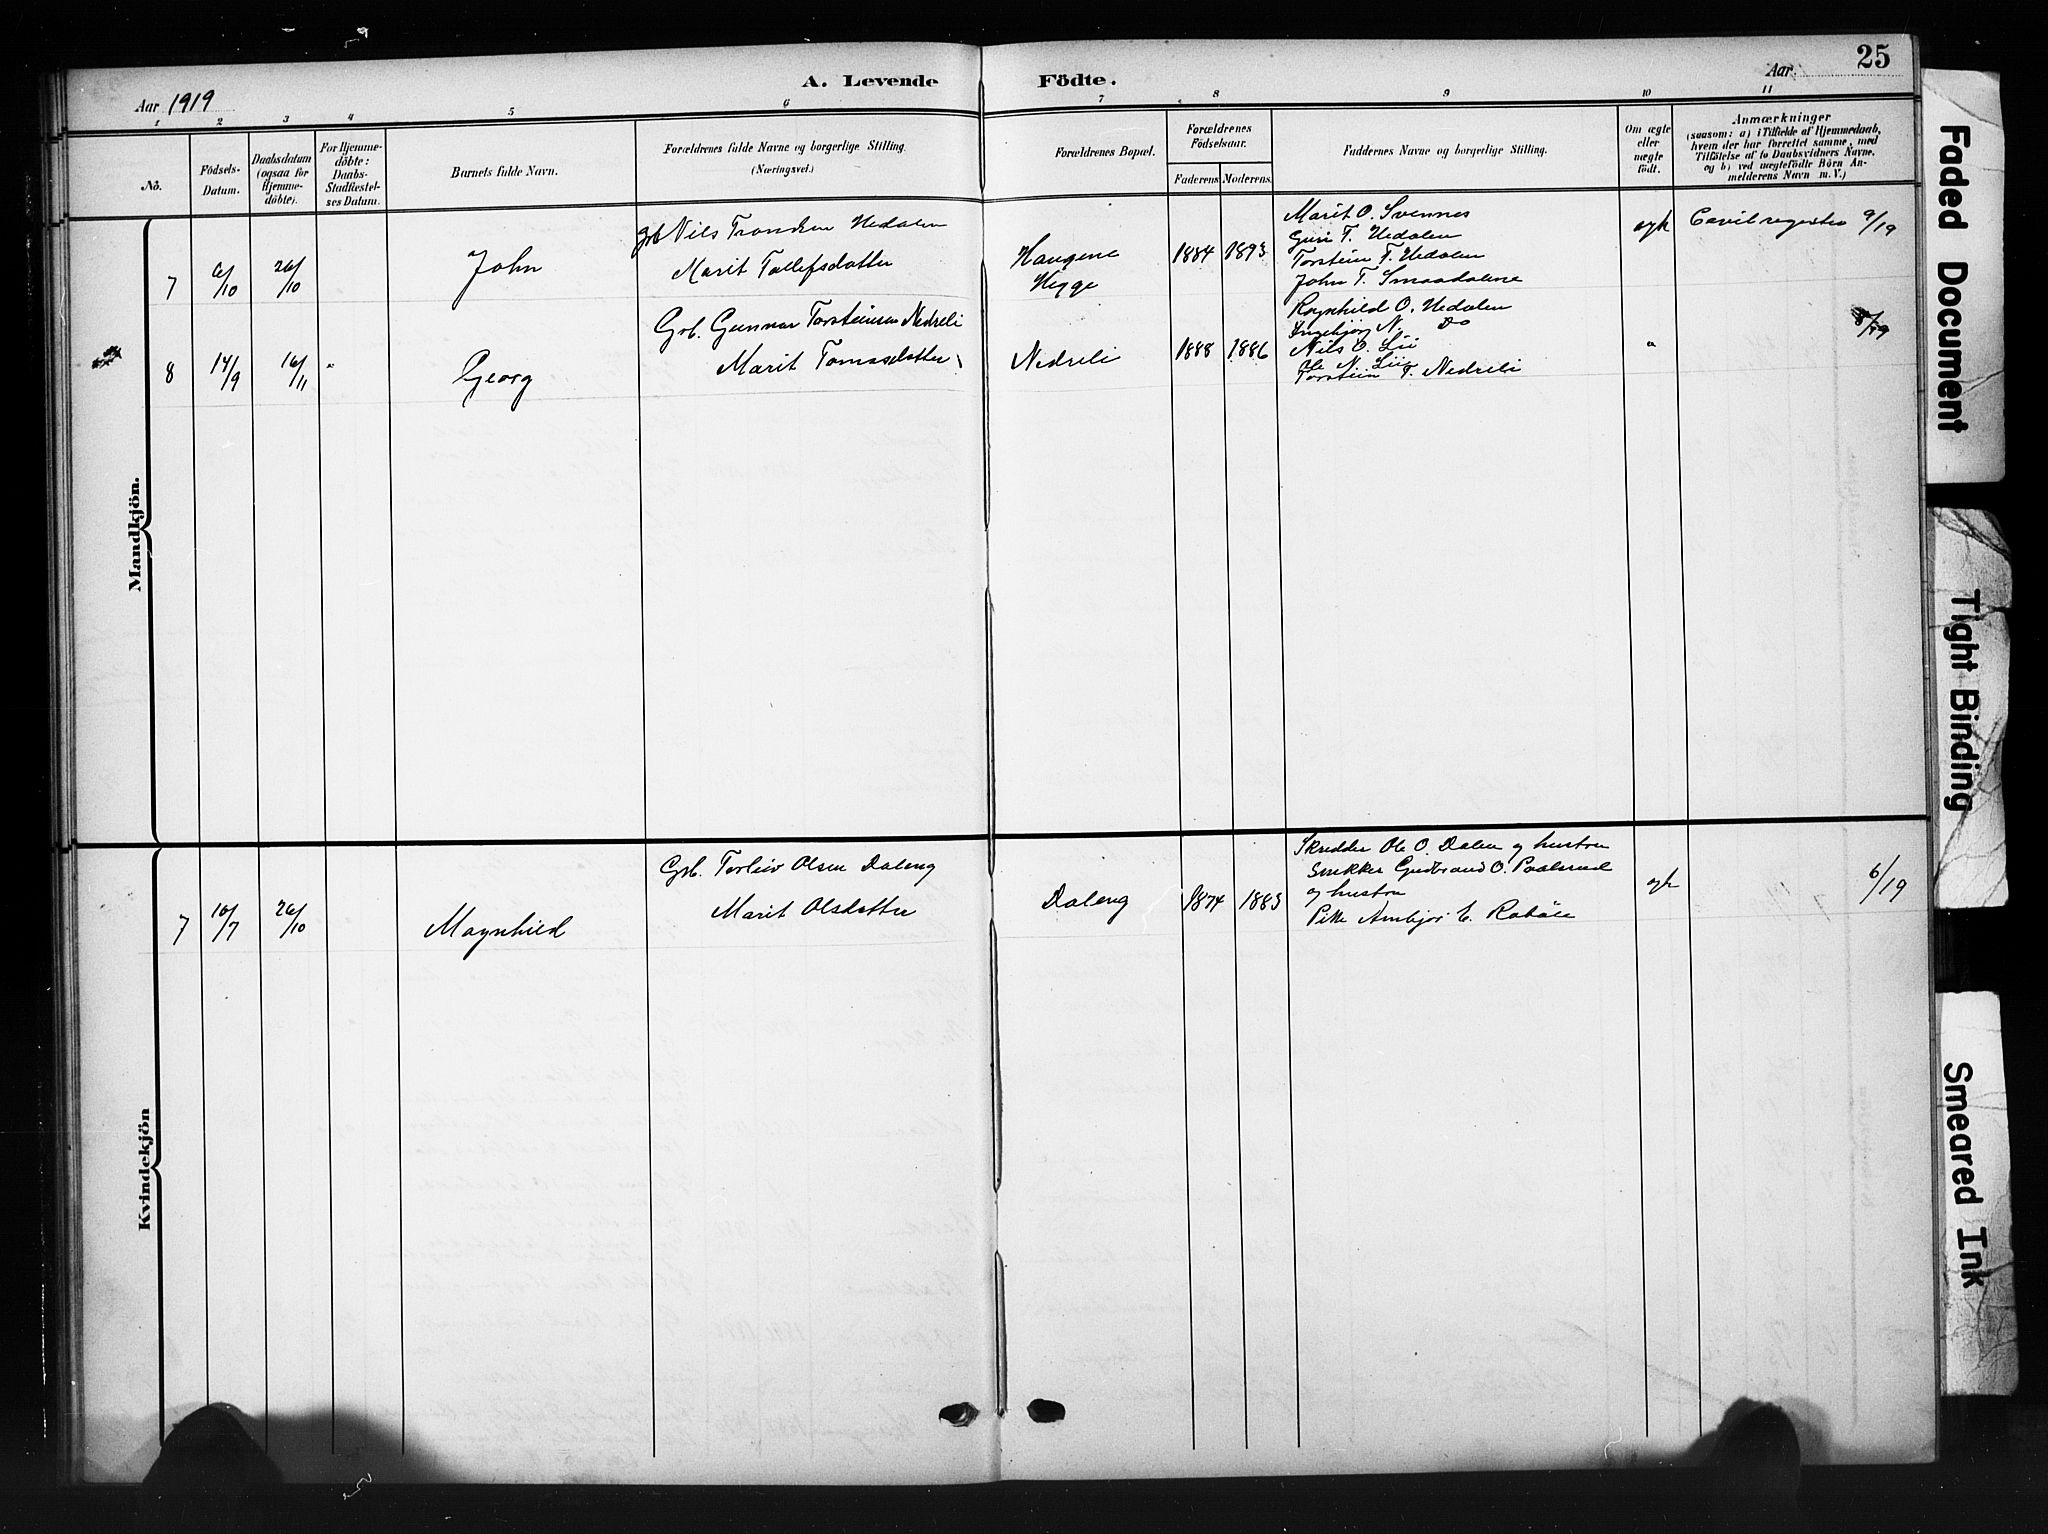 25
A. Levende Födte.
Aar 1919
Aar
1 2 3 4 5 6 7 8 9 10 11
No.
Födsels-
Datum.
Daabsdatum
(ogsaa for
Hjemme-
döbte).
For Hjemme-
döbte:
Daabs-
Stadfæstel-
ses Datum.
Barnets fulde Navn.
Forældrenes fulde Navne og borgerlige Stilling.
(Næringsvei.)
Forældrenes Bopæl.
Forældrenes
Födselsaar.
Faderens
Moderens
Faddernes Navne og borgerlige Stilling.
Om ægte
eller
uægte
födt.
Anmærkninger
(saasom: a) i Tilfælde af Hjemmedaab,
hvem der har forrettet samme, med
Tilföielse af to Daabsvidners Navne.
og b) ved uægtefödte Börn An-
melderens Navn m. V.)
Mandkjön.
7
6/10
26/10
John
Grb Nils Trondsen Hedalen
Marit Tollefsdatter
Haugene
Hegge
1884
1893
Marit O. Svennes
Guri T. Hedalen
Torstein T. Hedalen
John T. Smaadalene
egte
9/19
8
14/9
16/11
"
Georg
Grb. Gunnar Torsteinsen Nedreli
Marit Tomasdatter
Nedreli
1888
1886
Ragnhild O. Hedalen
Ingebjörg N. Do
Nils O. Lii
Ole N. Lii
Torstein T. Nedreli
"
8/19
Kvindekjön
7
10/7
26/10
Magnhild
Grb. Torleiv Olsen Daleng
Marit Olsdatter
Daleng
1874
1883
Skredder Ole O. Dalen og hustru
Snekker Gudbrand O. Paalsrud
og hustru
Pike Ambjør E. Robøle
egte
6/19
Faded Document
Tight Binding
Smeared Ink